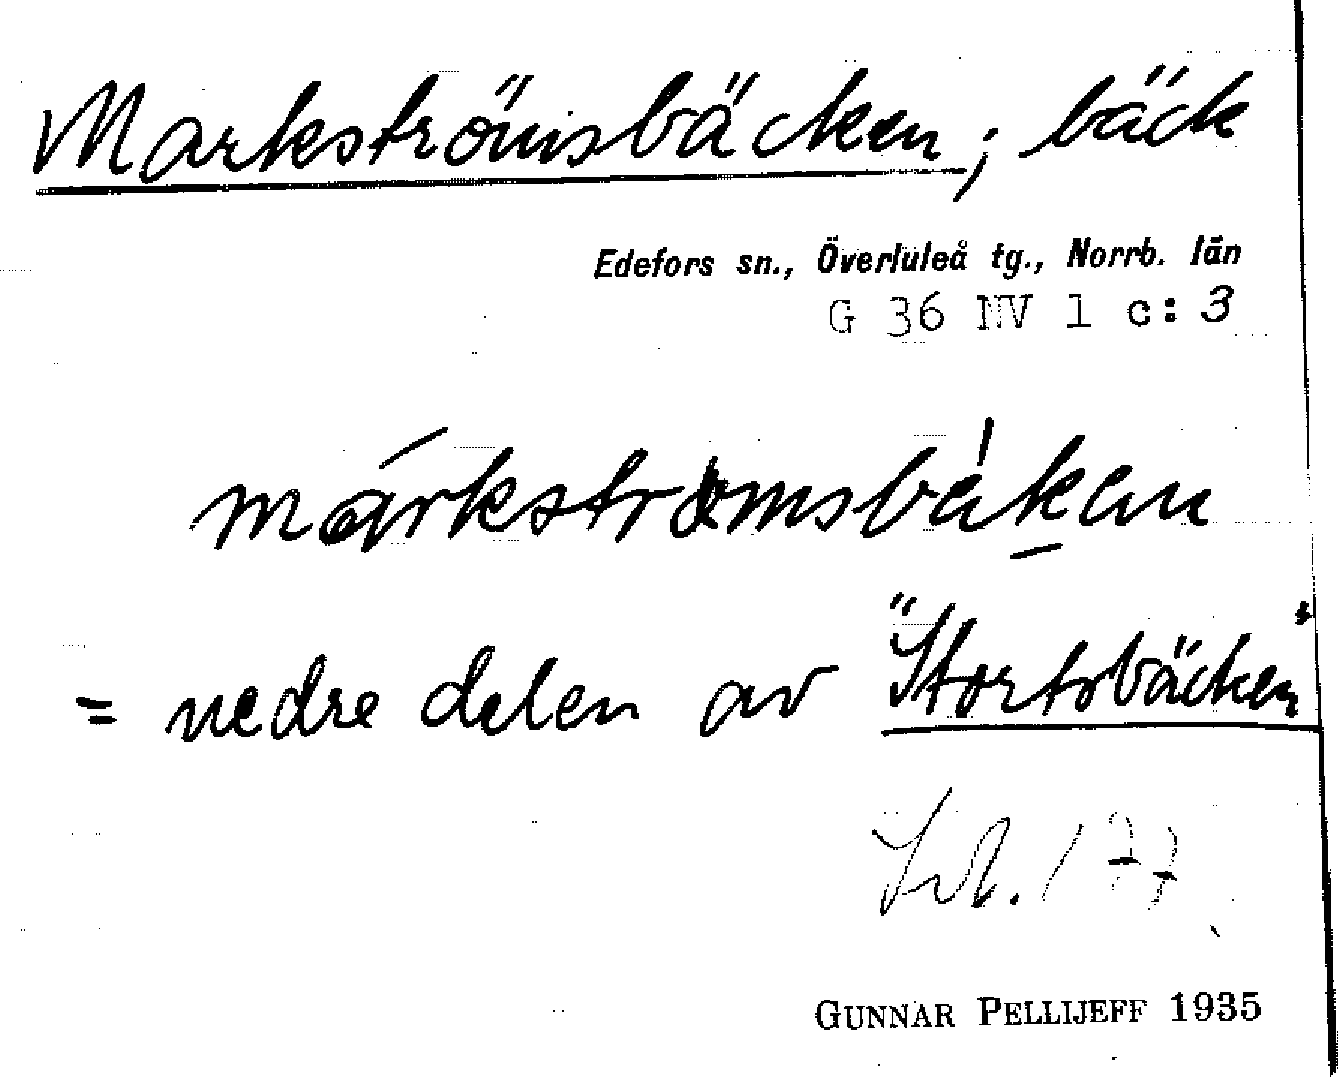 Markströmsbäcken; bäck
Edefors sn., Överluleå tg., Norrb. län
G 36 NV 1 c: 3
= nedre delen av "Stortsbäcken"
177
GUNNAR PELLIJEFF 1935